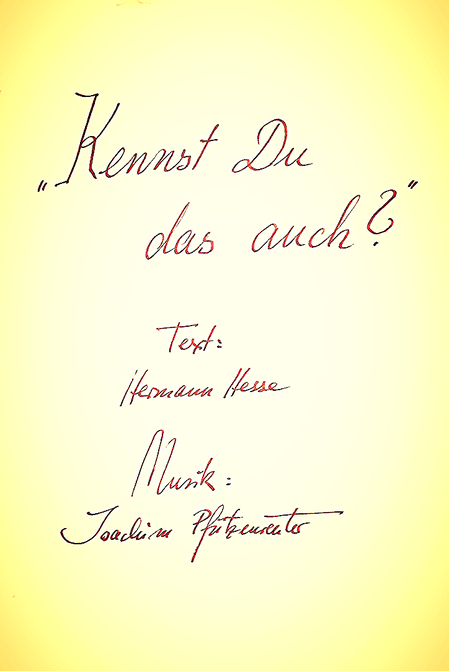 „Kennst Du
das auch?"
Text:
Hermann Hesse
Musik:
Joachim Pfützenreuter